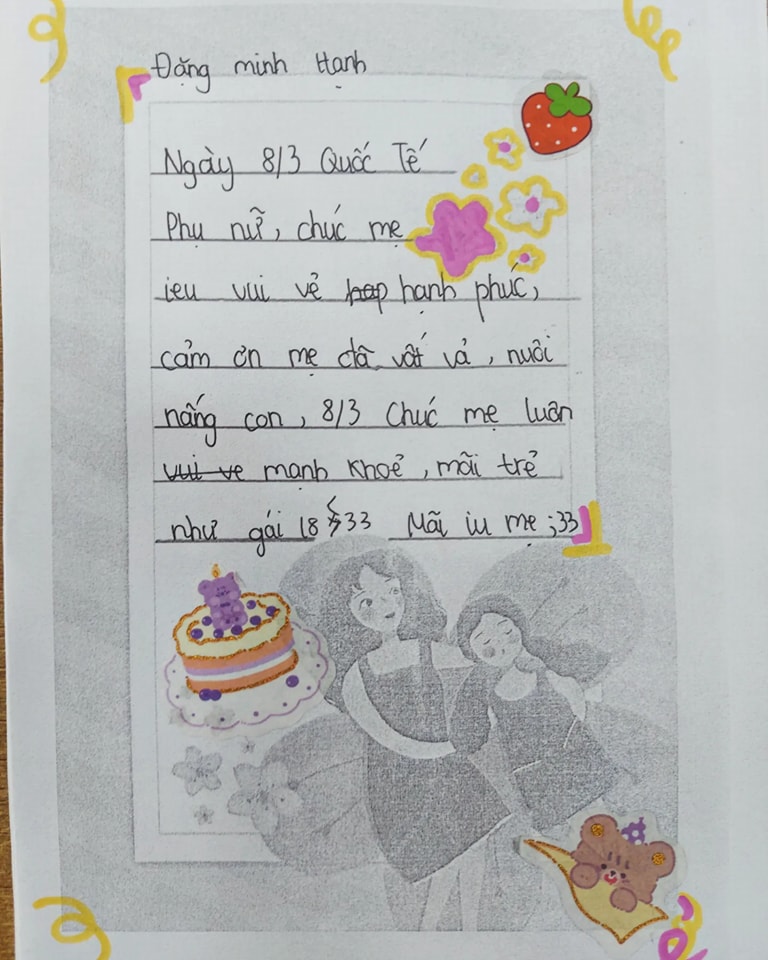 Đặng minh Hạnh
Ngày 8/3 Quốc Tế
Phụ nữ, chúc mẹ
ieu vui vẻ hạnh phúc,
cảm ơn mẹ đã vất vả, nuôi
nấng con, 8/3 Chúc mẹ luân
vui ve mạnh khoẻ, mãi trẻ
như gái 18 :33 Mãi iu mẹ ;33